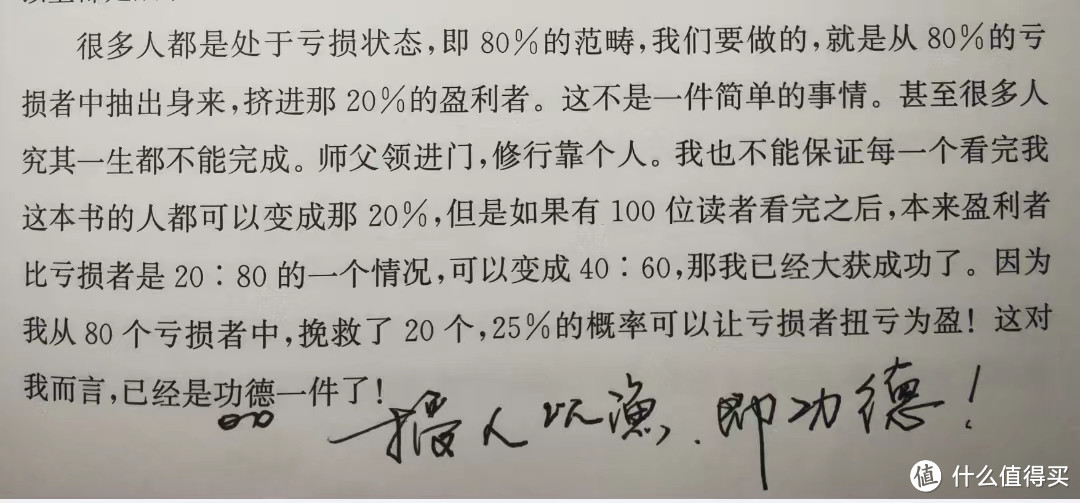 很多人都是处于亏损状态,即 80%的范畴,我们要做的,就是从 80%的亏
损者中抽出身来,挤进那 20%的盈利者。这不是一件简单的事情。甚至很多人
究其一生都不能完成。师父领进门,修行靠个人。我也不能保证每一个看完我
这本书的人都可以变成那 20%,但是如果有 100 位读者看完之后,本来盈利者
比亏损者是 20∶80 的一个情况,可以变成 40∶60,那我已经大获成功了。因为
我从 80 个亏损者中,挽救了 20 个,25%的概率可以让亏损者扭亏为盈!这对
我而言,已经是功德一件了!
授人以渔、即功德!
值 什么值得买